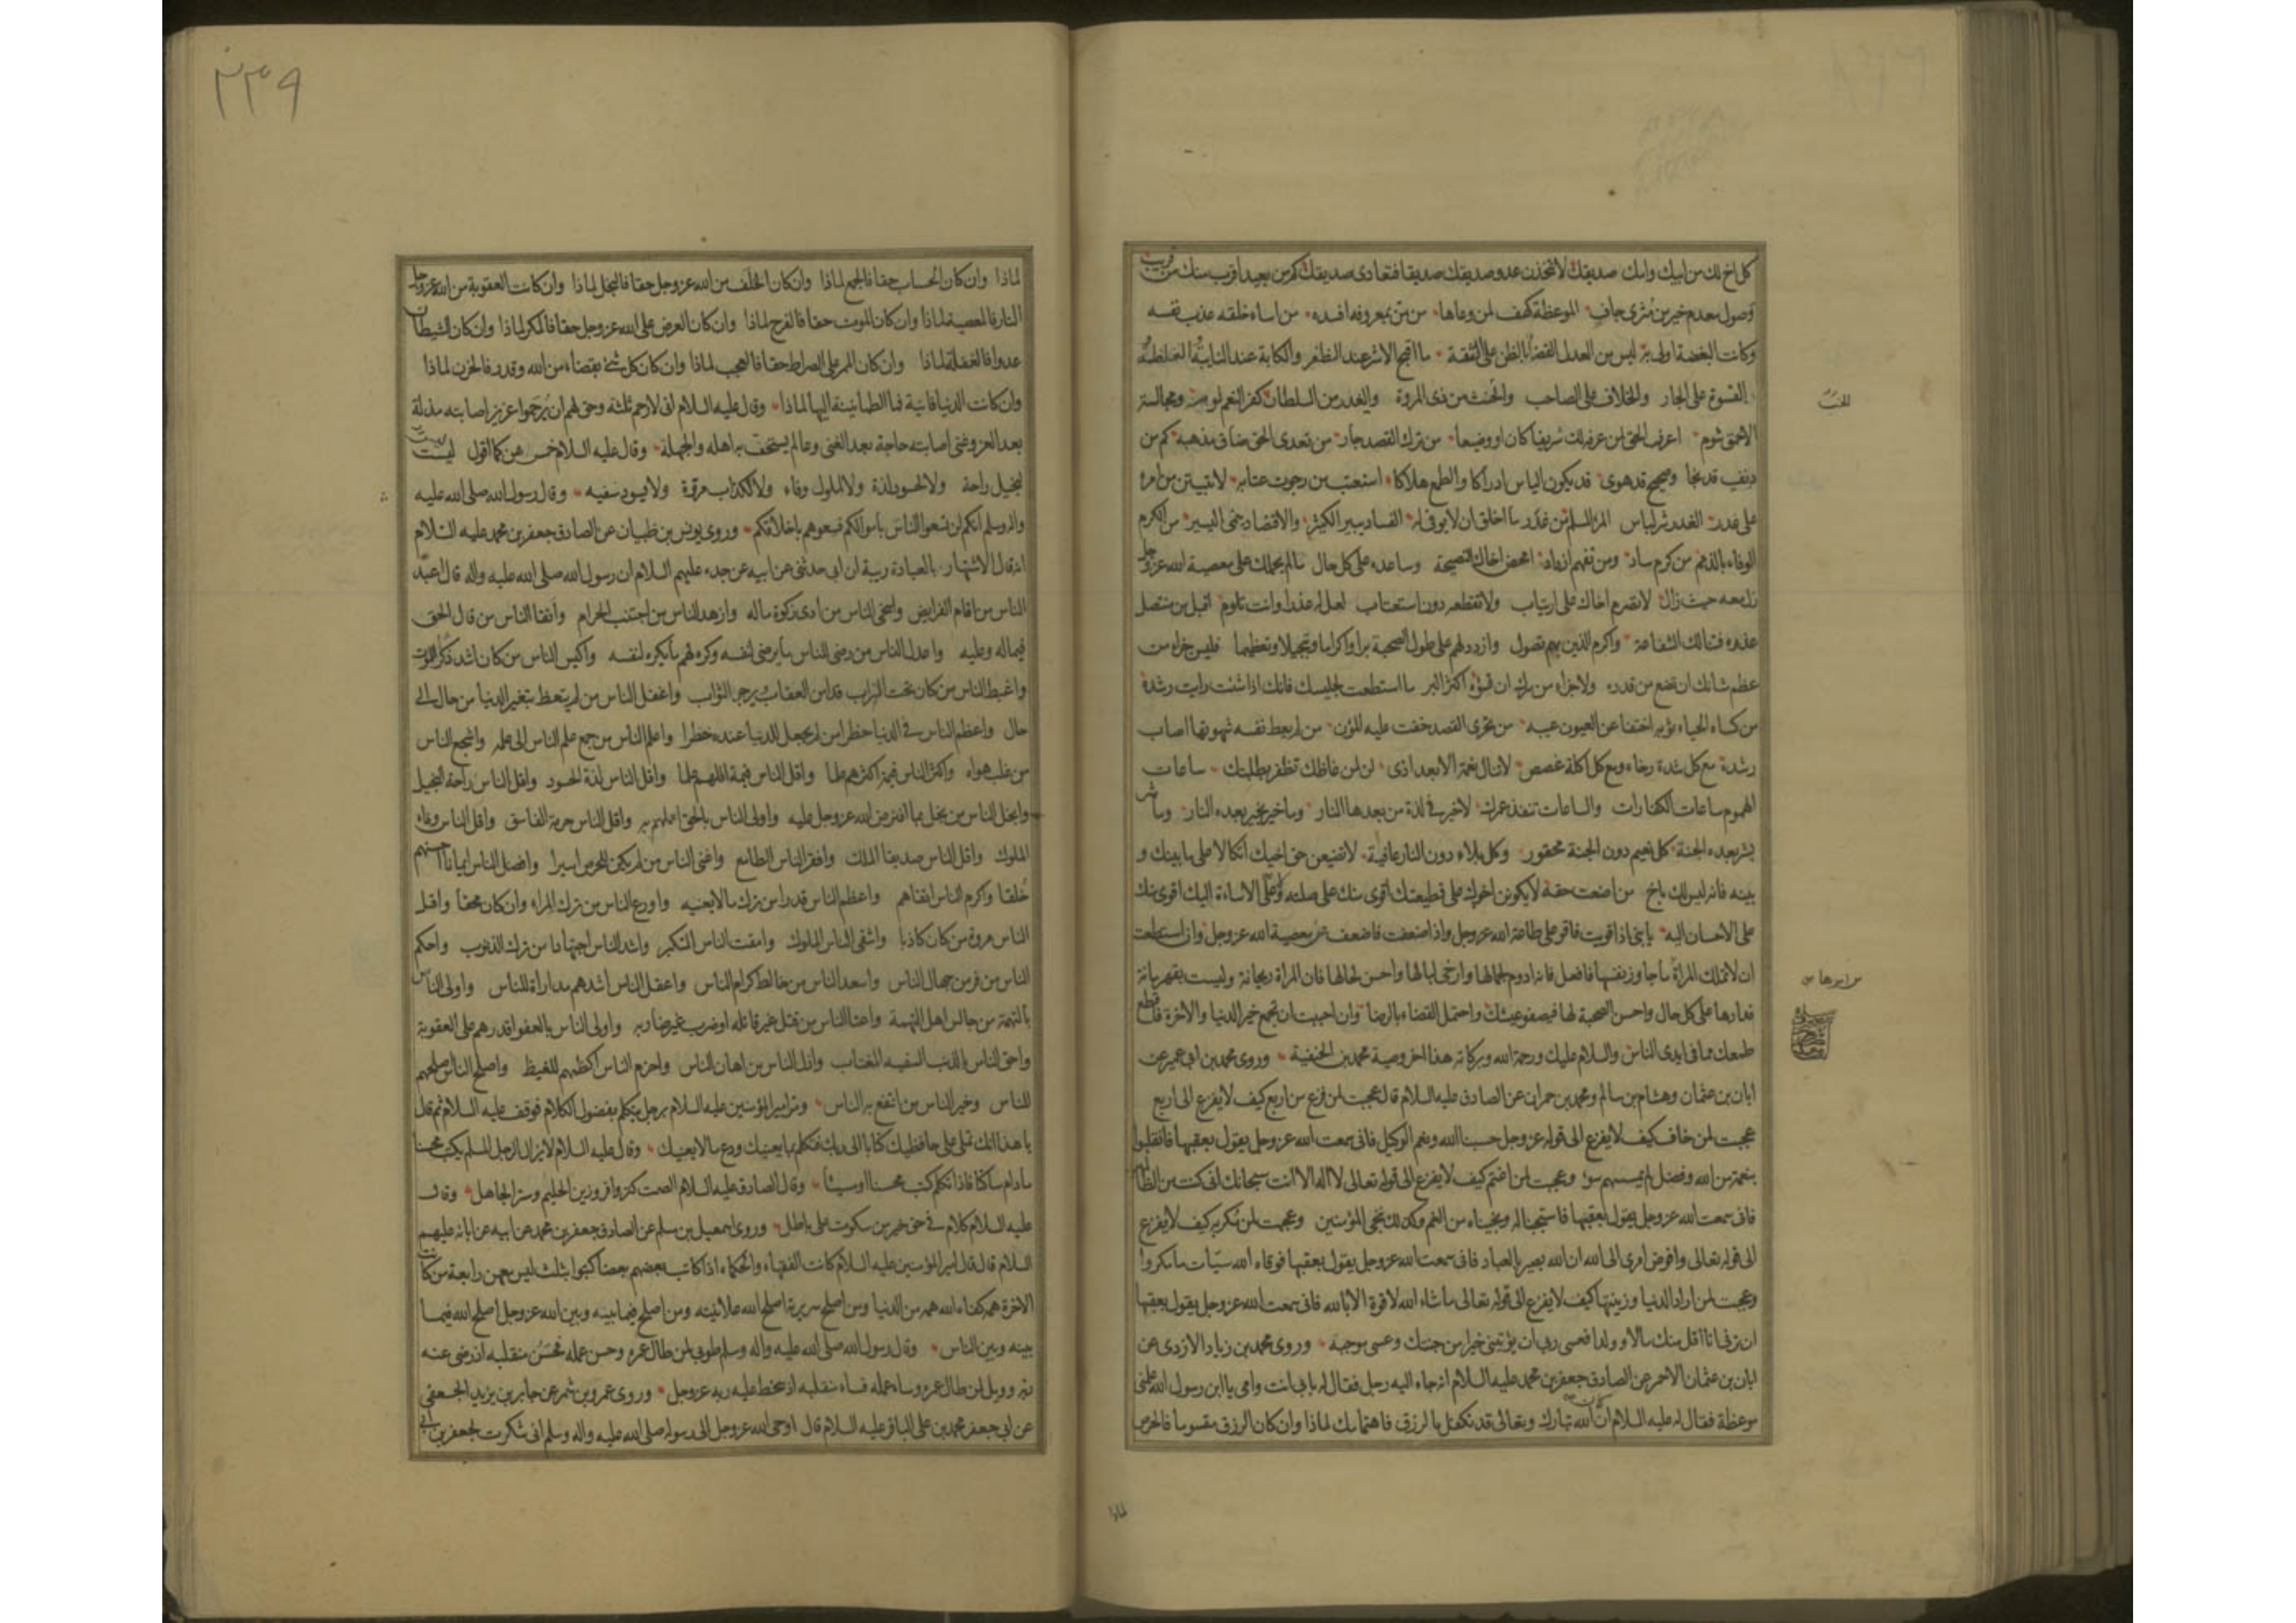 كل اخ لك من ابيك وامك صديقك لا تتخذن عدو صديقك صديقا فتعادى صديقك كم من بعيد اقرب منك من قريب
وصول معدم خير من مثرى جاف الموعظة كهف لمن وعاها من من بمعروفه افسده من اساء خلقه عذب نفسه
وكانت البغضة اولى به ليس من العدل القضا بالظن على الثقة ما اقبح الاشر عند الظفر والكابة عند النايبة الغلظة
القسوة على الجار والخلاف على الصاحب والحنث من ذى المروة والغدر من السلطان كفر النعم لوم ومجالسة
الاحمق شوم اعرف الحق لمن عرفه لك شريفا كان او وضيعا من ترك القصد جار من تعدى الحق ضاق مذهبه كم من
دنف قد نجا وصحيح قد هوى قد يكون الياس ادراكا والطمع هلاكا استعتب من رجوت عتابه لا تبيتن من امره
على غدر الغدر شر لباس المرء المسلم من غدر ما اخلق ان لا يوفى له الفساد يبير الكثير والاقتصاد ينمى اليسير من الكرم
الوفاء بالذمم من كرم ساد ومن تفهم ازداد امحض اخاك النصيحة وساعده على كل حال ما لم يحملك على معصية الله عز وجل
زل معه حيث زال لا تصرم اخاك على ارتياب ولا تقطعه دون استعتاب لعل له عذرا وانت تلوم اقبل من متنصل
عذره فتنالك الشفاعة واكرم الذين بهم تصول وازدد لهم على طول الصحبة برا واكراما وتبجيلا وتعظيما فليس جزاء من
عظم شانك ان تضع من قدره ولا جزاء من سرك ان تسوءه اكثر البر ما استطعت لجليسك فانك اذا شئت رايت رشده
من كساه الحياء ثوبه اختفا عن العيون عيبه من تحرى القصد خفت عليه المؤن من لم يعط نفسه شهوتها اصاب
رشده مع كل شدة رخاء ومع كل اكلة غصص لا تنال نعمة الا بعد اذى لن لمن غاظك تظفر بطلبتك ساعات
الهموم ساعات الكفارات والساعات تنفد عمرك لا خير فى لذة من بعدها النار وما خير بخير بعده النار وما شر
بشر بعده الجنة كل نعيم دون الجنة محقور وكل بلاء دون النار عافية لا تضيعن حق اخيك اتكالا على ما بينك و
بينه فانه ليس لك باخ من اضعت حقه لا يكونن اخوك على قطيعتك اقوى منك على صلته وعلى الاساءة اليك اقوى منك
على الاحسان اليه يا بنى اذا قويت فاقو على طاعة الله عز وجل واذا ضعفت فاضعف عن معصية الله عز وجل وان استطعت
ان لا تملك المراة ما جاوز نفسها فافعل فانه ادوم لجمالها وارخى لبالها واحسن لحالها فان المراة ريحانة وليست بقهرمانة
فدارها على كل حال واحسن الصحبة لها فيصفو عيشك واحتمل القضاء بالرضا وان احببت ان تجمع خير الدنيا والاخرة فاقطع
طمعك مما فى ايدى الناس والسلام عليك ورحمة الله وبركاته هذا اخر وصية محمد بن الحنفية وروى محمد بن ابى عمير عن
ابان بن عثمان وهشام بن سالم ومحمد بن حمران عن الصادق عليه السلام قال عجبت لمن فزع من اربع كيف لا يفزع الى اربع
عجبت لمن خاف كيف لا يفزع الى قوله عز وجل حسبنا الله ونعم الوكيل فانى سمعت الله عز وجل يقول بعقبها فانقلبوا
بنعمة من الله وفضل لم يمسسهم سوء وعجبت لمن اغتم كيف لا يفزع الى قوله تعالى لا اله الا انت سبحانك انى كنت من الظالمين
فانى سمعت الله عز وجل يقول بعقبها فاستجبنا له ونجيناه من الغم وكذلك ننجى المؤمنين وعجبت لمن مكر به كيف لا يفزع
الى قوله تعالى وافوض امرى الى الله ان الله بصير بالعباد فانى سمعت الله عز وجل يقول بعقبها فوقاه الله سيئات ما مكروا
وعجبت لمن اراد الدنيا وزينتها كيف لا يفزع الى قوله تعالى ما شاء الله لا قوة الا بالله فانى سمعت الله عز وجل يقول بعقبها
ان ترنى انا اقل منك مالا وولدا فعسى ربى ان يؤتينى خيرا من جنتك وعسى موجبة وروى محمد بن زياد الازدى عن
ابان بن عثمان الاحمر عن الصادق جعفر بن محمد عليه السلام انه جاء اليه رجل فقال له بابى انت وامى يا ابن رسول الله علمنى
موعظة فقال له عليه السلام ان الله تبارك وتعالى قد تكفل بالرزق فاهتمامك لماذا وان كان الرزق مقسوما فالحرص
لماذا
٣٣٩
لماذا وان كان الحساب حقا فالجمع لماذا وان كان الخلف من الله عز وجل حقا فالبخل لماذا وان كانت العقوبة من الله عز وجل
النار فالمعصية لماذا وان كان الموت حقا فالفرح لماذا وان كان العرض على الله عز وجل حقا فالمكر لماذا وان كان الشيطان
عدوا فالغفلة لماذا وان كان الممر على الصراط حقا فالعجب لماذا وان كان كل شئ بقضاء من الله وقدر فالحزن لماذا
وان كانت الدنيا فانية فالطمانينة اليها لماذا وقال عليه السلام انى لارحم ثلثة وحق لهم ان يرحموا عزيز اصابته مذلة
بعد العز وغنى اصابته حاجة بعد الغنى وعالم يستخف به اهله والجهلة وقال عليه السلام خمس هن كما اقول ليست
لبخيل راحة ولا لحسود لذة ولا لملوك وفاء ولا لكذاب مروة ولا يسود سفيه وقال رسول الله صلى الله عليه
واله وسلم انكم لن تسعوا الناس باموالكم فسعوهم باخلاقكم وروى يونس بن ظبيان عن الصادق جعفر بن محمد عليه السلام
انه قال الاشتهار بالعبادة ريبة ان ابى حدثنى عن ابيه عن جده عليهم السلام ان رسول الله صلى الله عليه واله قال اعبد
الناس من اقام الفرايض واسخى الناس من ادى زكوة ماله وازهد الناس من اجتنب الحرام واتقا الناس من قال الحق
فيما له وعليه واعدل الناس من رضى للناس ما يرضى لنفسه وكره لهم ما يكره لنفسه واكيس الناس من كان اشد ذكرا للموت
واغبط الناس من كان تحت التراب قد امن العقاب يرجو الثواب واغفل الناس من لم يتعظ بتغير الدنيا من حال الى
حال واعظم الناس فى الدنيا خطرا من لم يجعل للدنيا عنده خطرا واعلم الناس من جمع علم الناس الى علمه واشجع الناس
من غلب هواه واكثر الناس قيمة اكثرهم علما واقل الناس قيمة اقلهم علما واقل الناس لذة الحسود واقل الناس راحة البخيل
وابخل الناس من بخل بما افترض الله عز وجل عليه واولى الناس بالحق اعلمهم به واقل الناس حرمة الفاسق واقل الناس وفاء
الملوك واقل الناس صديقا الملك وافقر الناس الطامع واغنى الناس من لم يكن للحرص اسيرا وافضل الناس ايمانا احسنهم
خلقا واكرم الناس اتقاهم واعظم الناس قدرا من ترك ما لا يعنيه واورع الناس من ترك المراء وان كان محقا واقل
الناس مروة من كان كاذبا واشقى الناس الملوك وامقت الناس المتكبر واشد الناس اجتهادا من ترك الذنوب واحكم
الناس من فر من جهال الناس واسعد الناس من خالط كرام الناس واعقل الناس اشدهم مداراة للناس واولى الناس
بالتهمة من جالس اهل التهمة واعتا الناس من قتل غير قاتله او ضرب غير ضاربه واولى الناس بالعفو اقدرهم على العقوبة
واحق الناس بالذنب السفيه المغتاب واذل الناس من اهان الناس واحزم الناس اكظمهم للغيظ واصلح الناس اصلحهم
للناس وخير الناس من انتفع به الناس ومر امير المؤمنين عليه السلام برجل يتكلم بفضول الكلام فوقف عليه السلام ثم قال
يا هذا انك تملى على حافظيك كتابا الى ربك فتكلم بما يعنيك ودع ما لا يعنيك وقال عليه السلام لا يزال الرجل المسلم يكتب محسنا
مادام ساكتا فاذا تكلم كتب محسنا او مسيئا وقال الصادق عليه السلام الصمت كنز وافر وزين الحليم وستر الجاهل وقال
عليه السلام كلام فى حق خير من سكوت على باطل وروى اسمعيل بن مسلم عن الصادق جعفر بن محمد عن ابيه عن ابائه عليهم
السلام قال قال امير المؤمنين عليه السلام كانت الفقهاء والحكماء اذا كاتب بعضهم بعضا كتبوا بثلث ليس معهن رابعة من كانت
الاخرة همه كفاه الله همه من الدنيا ومن اصلح سريرته اصلح الله علانيته ومن اصلح فيما بينه وبين الله عز وجل اصلح الله فيما
بينه وبين الناس وقال رسول الله صلى الله عليه واله وسلم طوبى لمن طال عمره وحسن عمله فحسن منقلبه اذ رضى عنه
ربه وويل لمن طال عمره وساء عمله فساء منقلبه اذ سخط عليه ربه عز وجل وروى عمرو بن شمر عن جابر بن يزيد الجعفى
عن ابى جعفر محمد بن على الباقر عليه السلام قال اوحى الله عز وجل الى رسوله صلى الله عليه واله وسلم انى شكرت لجعفر بن ابى